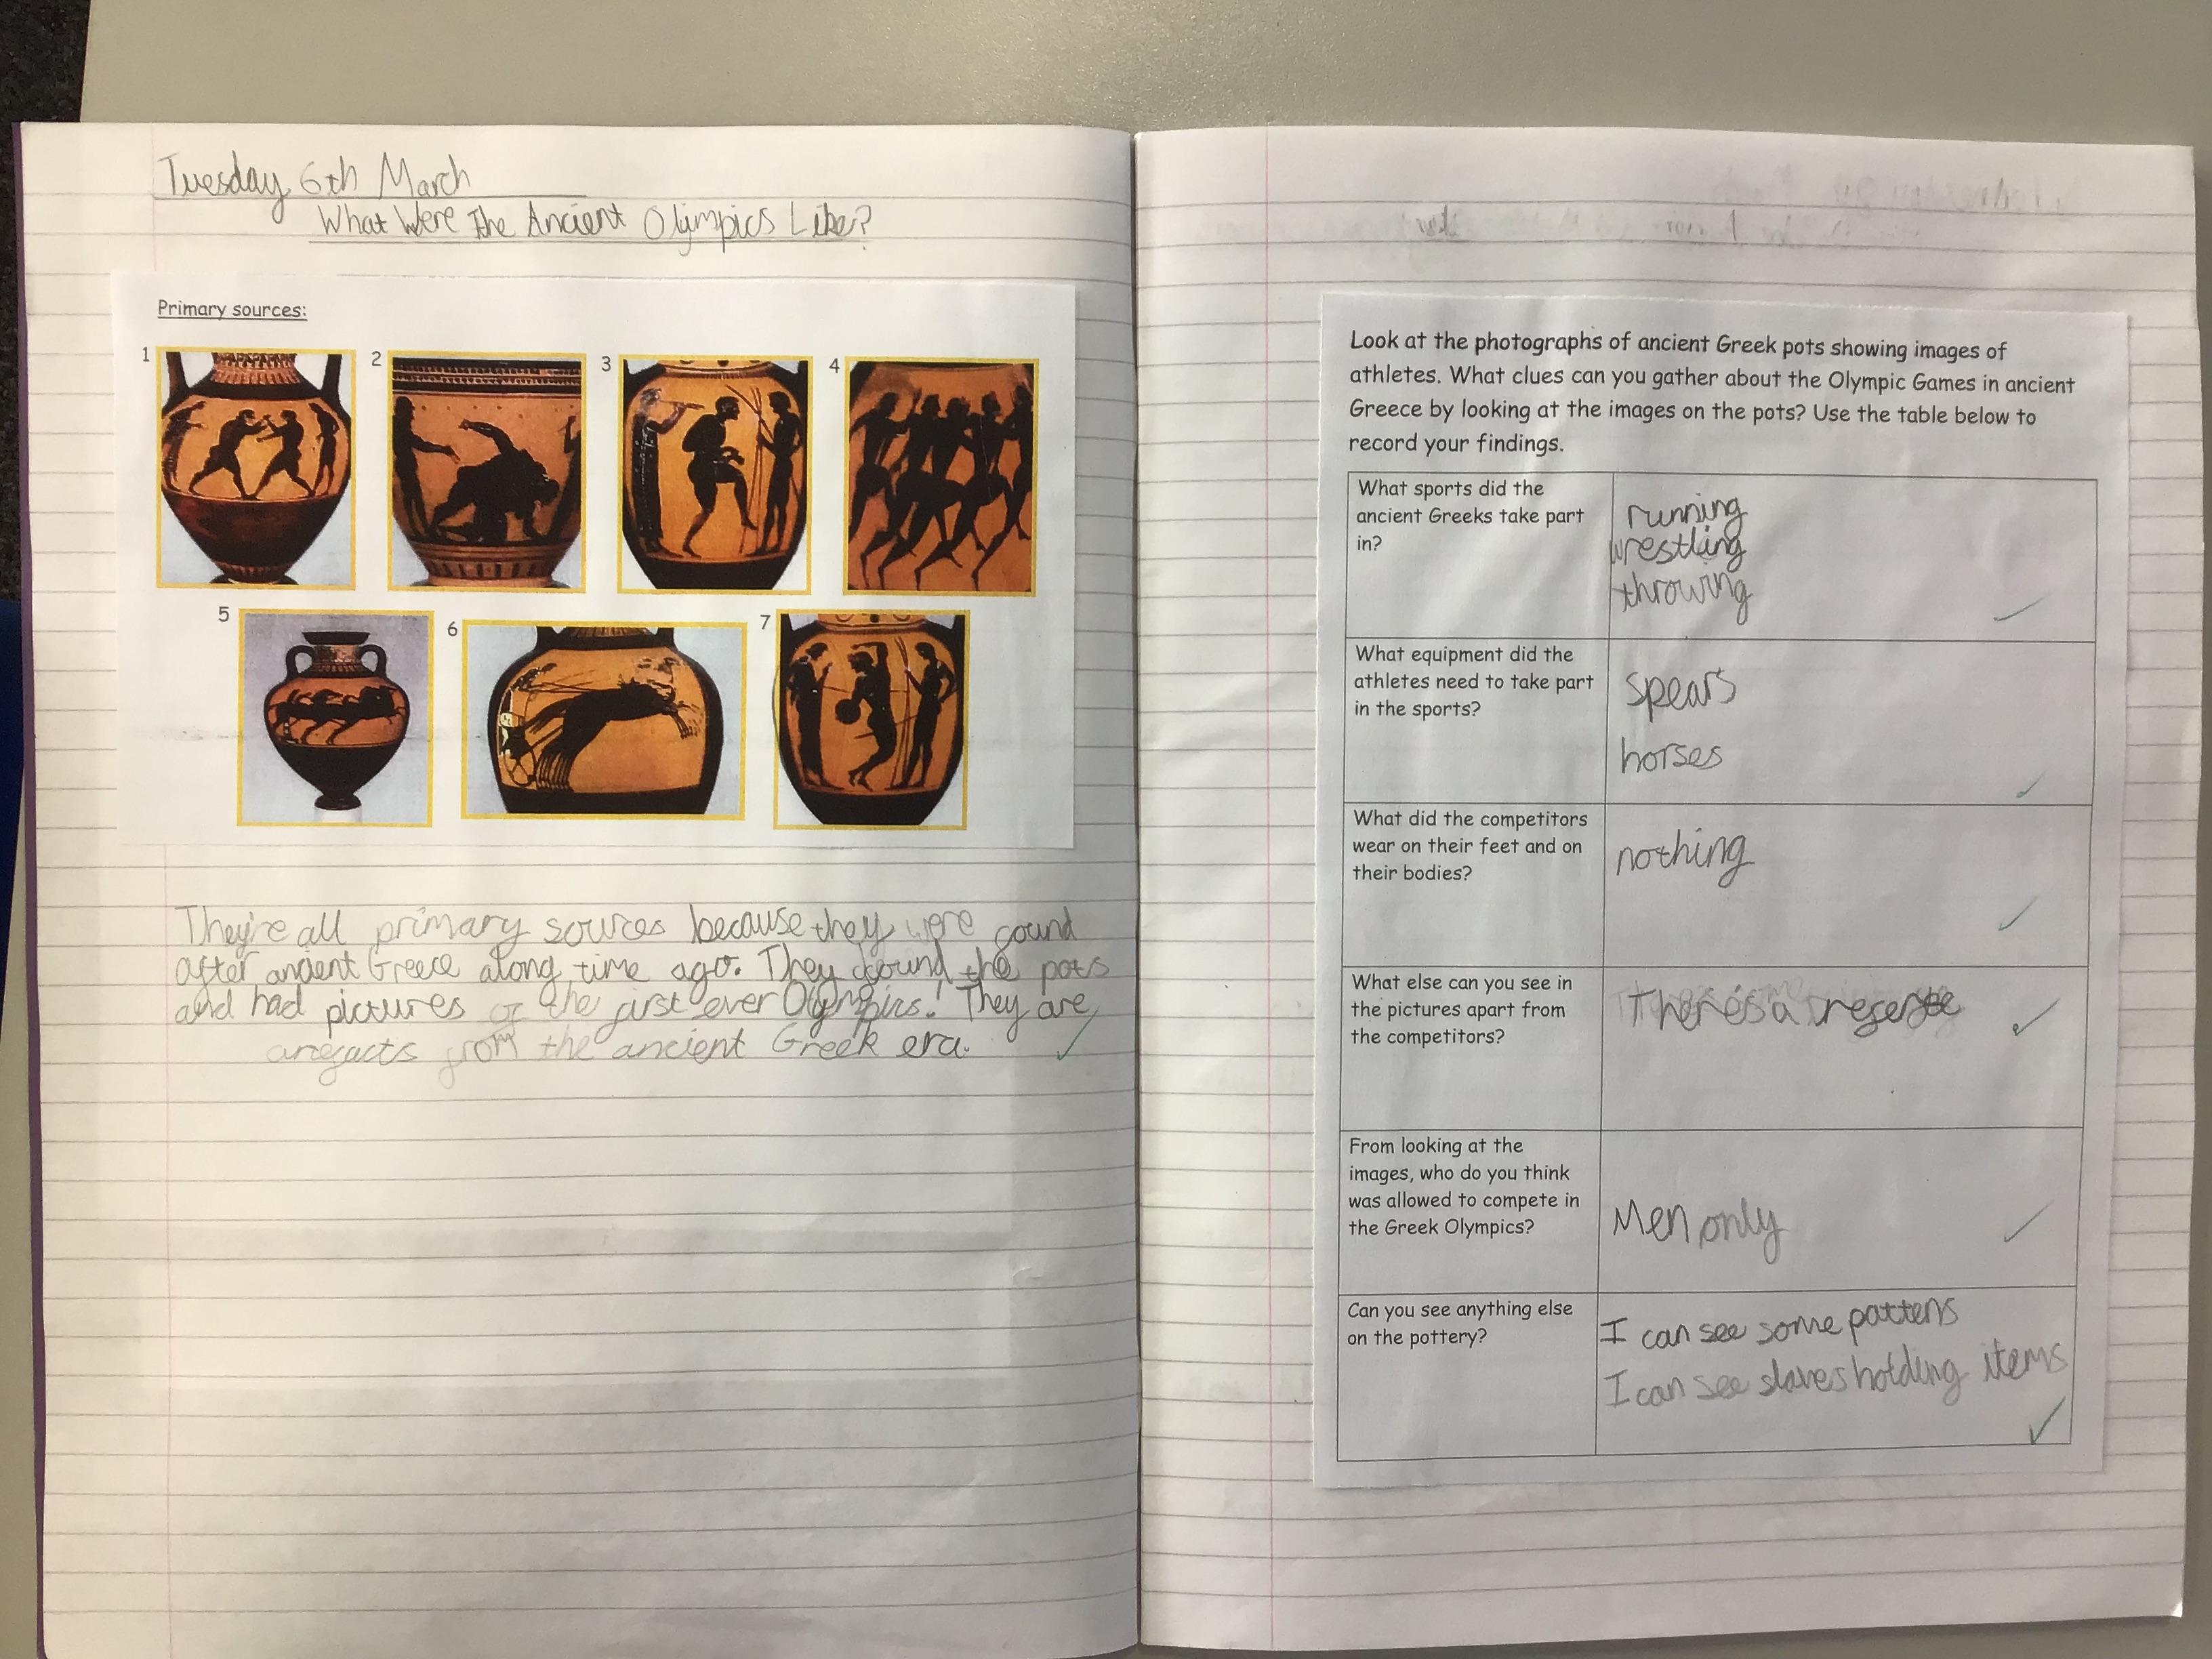 Tuesday 6th March
What Were The Ancient Olimpics Like?
Primary sources:
1
2
3
4
5
6
7
They're all primary sources because they were found
after ancient Greece along time ago. They found the pots
and had pictures of the first ever Olympics! They are
arefacts from the ancient Greek era.
Look at the photographs of ancient Greek pots showing images of
athletes. What clues can you gather about the Olympic Games in ancient
Greece by looking at the images on the pots? Use the table below to
record your findings.
What sports did the
ancient Greeks take part
in?
running
wrestling
throwing
What equipment did the
athletes need to take part
in the sports?
spears
horses
What did the competitors
wear on their feet and on
their bodies?
nothing
What else can you see in
the pictures apart from
the competitors?
There's a
From looking at the
images, who do you think
was allowed to compete in
the Greek Olympics?
Men only
Can you see anything else
on the pottery?
I can see some pattens
I can see slaves holding items